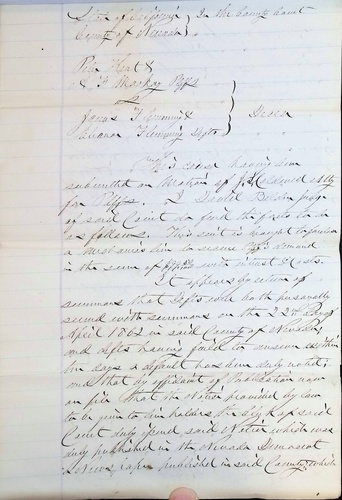 State of California } In the County Court
County of Nevada }
Peter Hent &
& F Mackay Plffs
vs
James Flemming &
Eleanor Flemming Defts } Decree
This cause having been
submitted on Motion of J. Caldwell atty
for Plffs. I David Belden judge
of said Court do find the facts to be
as follows. This suit is brought to foreclose
a Mechanics lien to secure Plffs demand
in the sum of with interest & costs.
It appears by return of
summons that Defts were both personally
served with summons on the 22nd day of
April 1862 in said County of Nevada,
and defts having failed to answer within
ten days a default has been duly noted;
and that by affidavit of publication now
on file that the Notice provided by law
to be given to lien holders, the Clerk of said
Court duly issued said Notice which was
duly published in the Nevada Democrat
a Newspaper published in said County, which